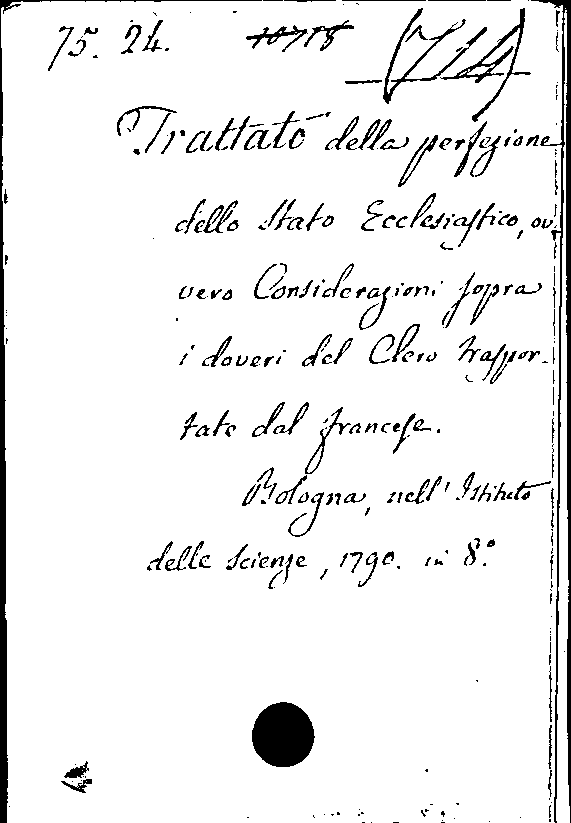 75. 24. 10718 (714)
Trattato della perfezione
dello Stato Ecclesiastico, ov,
vero Considerazioni sopra
i doveri del Clero traspor-
tate dal francese.
Bologna, nell' Istituto
delle Scienze, 1790. in 8.°